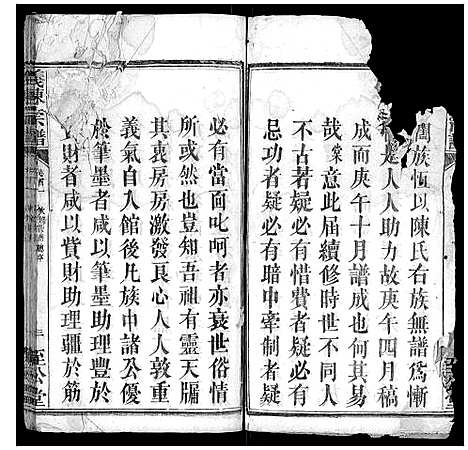 閤族恆以陳氏右族無譜爲慚
是人人助力故庚午四月稿
成而庚午十月譜成也何其易
哉棠意此届續修時世不同人
不古若疑必有惜費者疑必有
忌功者疑必有暗中牽制者疑
必有當面叱呵者亦衰世俗情
所或然也豈知吾祖有靈天牖
其衷房房激發良心人人敦重
義氣自人館後凡族中諸公優
於筆墨者咸以筆墨助理豐於
財者咸以貲財助理疆於筋
義陳宗譜
卷首
三
至公堂